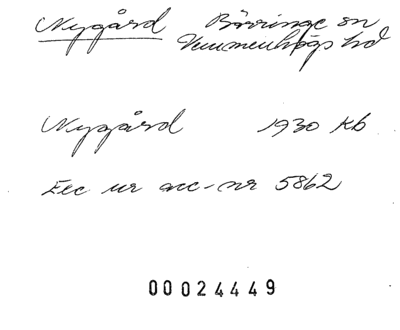 Nygård Börringe sn
Vemmenhögs hd
Nygård 1930 Kb
Exc ur acc-nr 5862
00024449